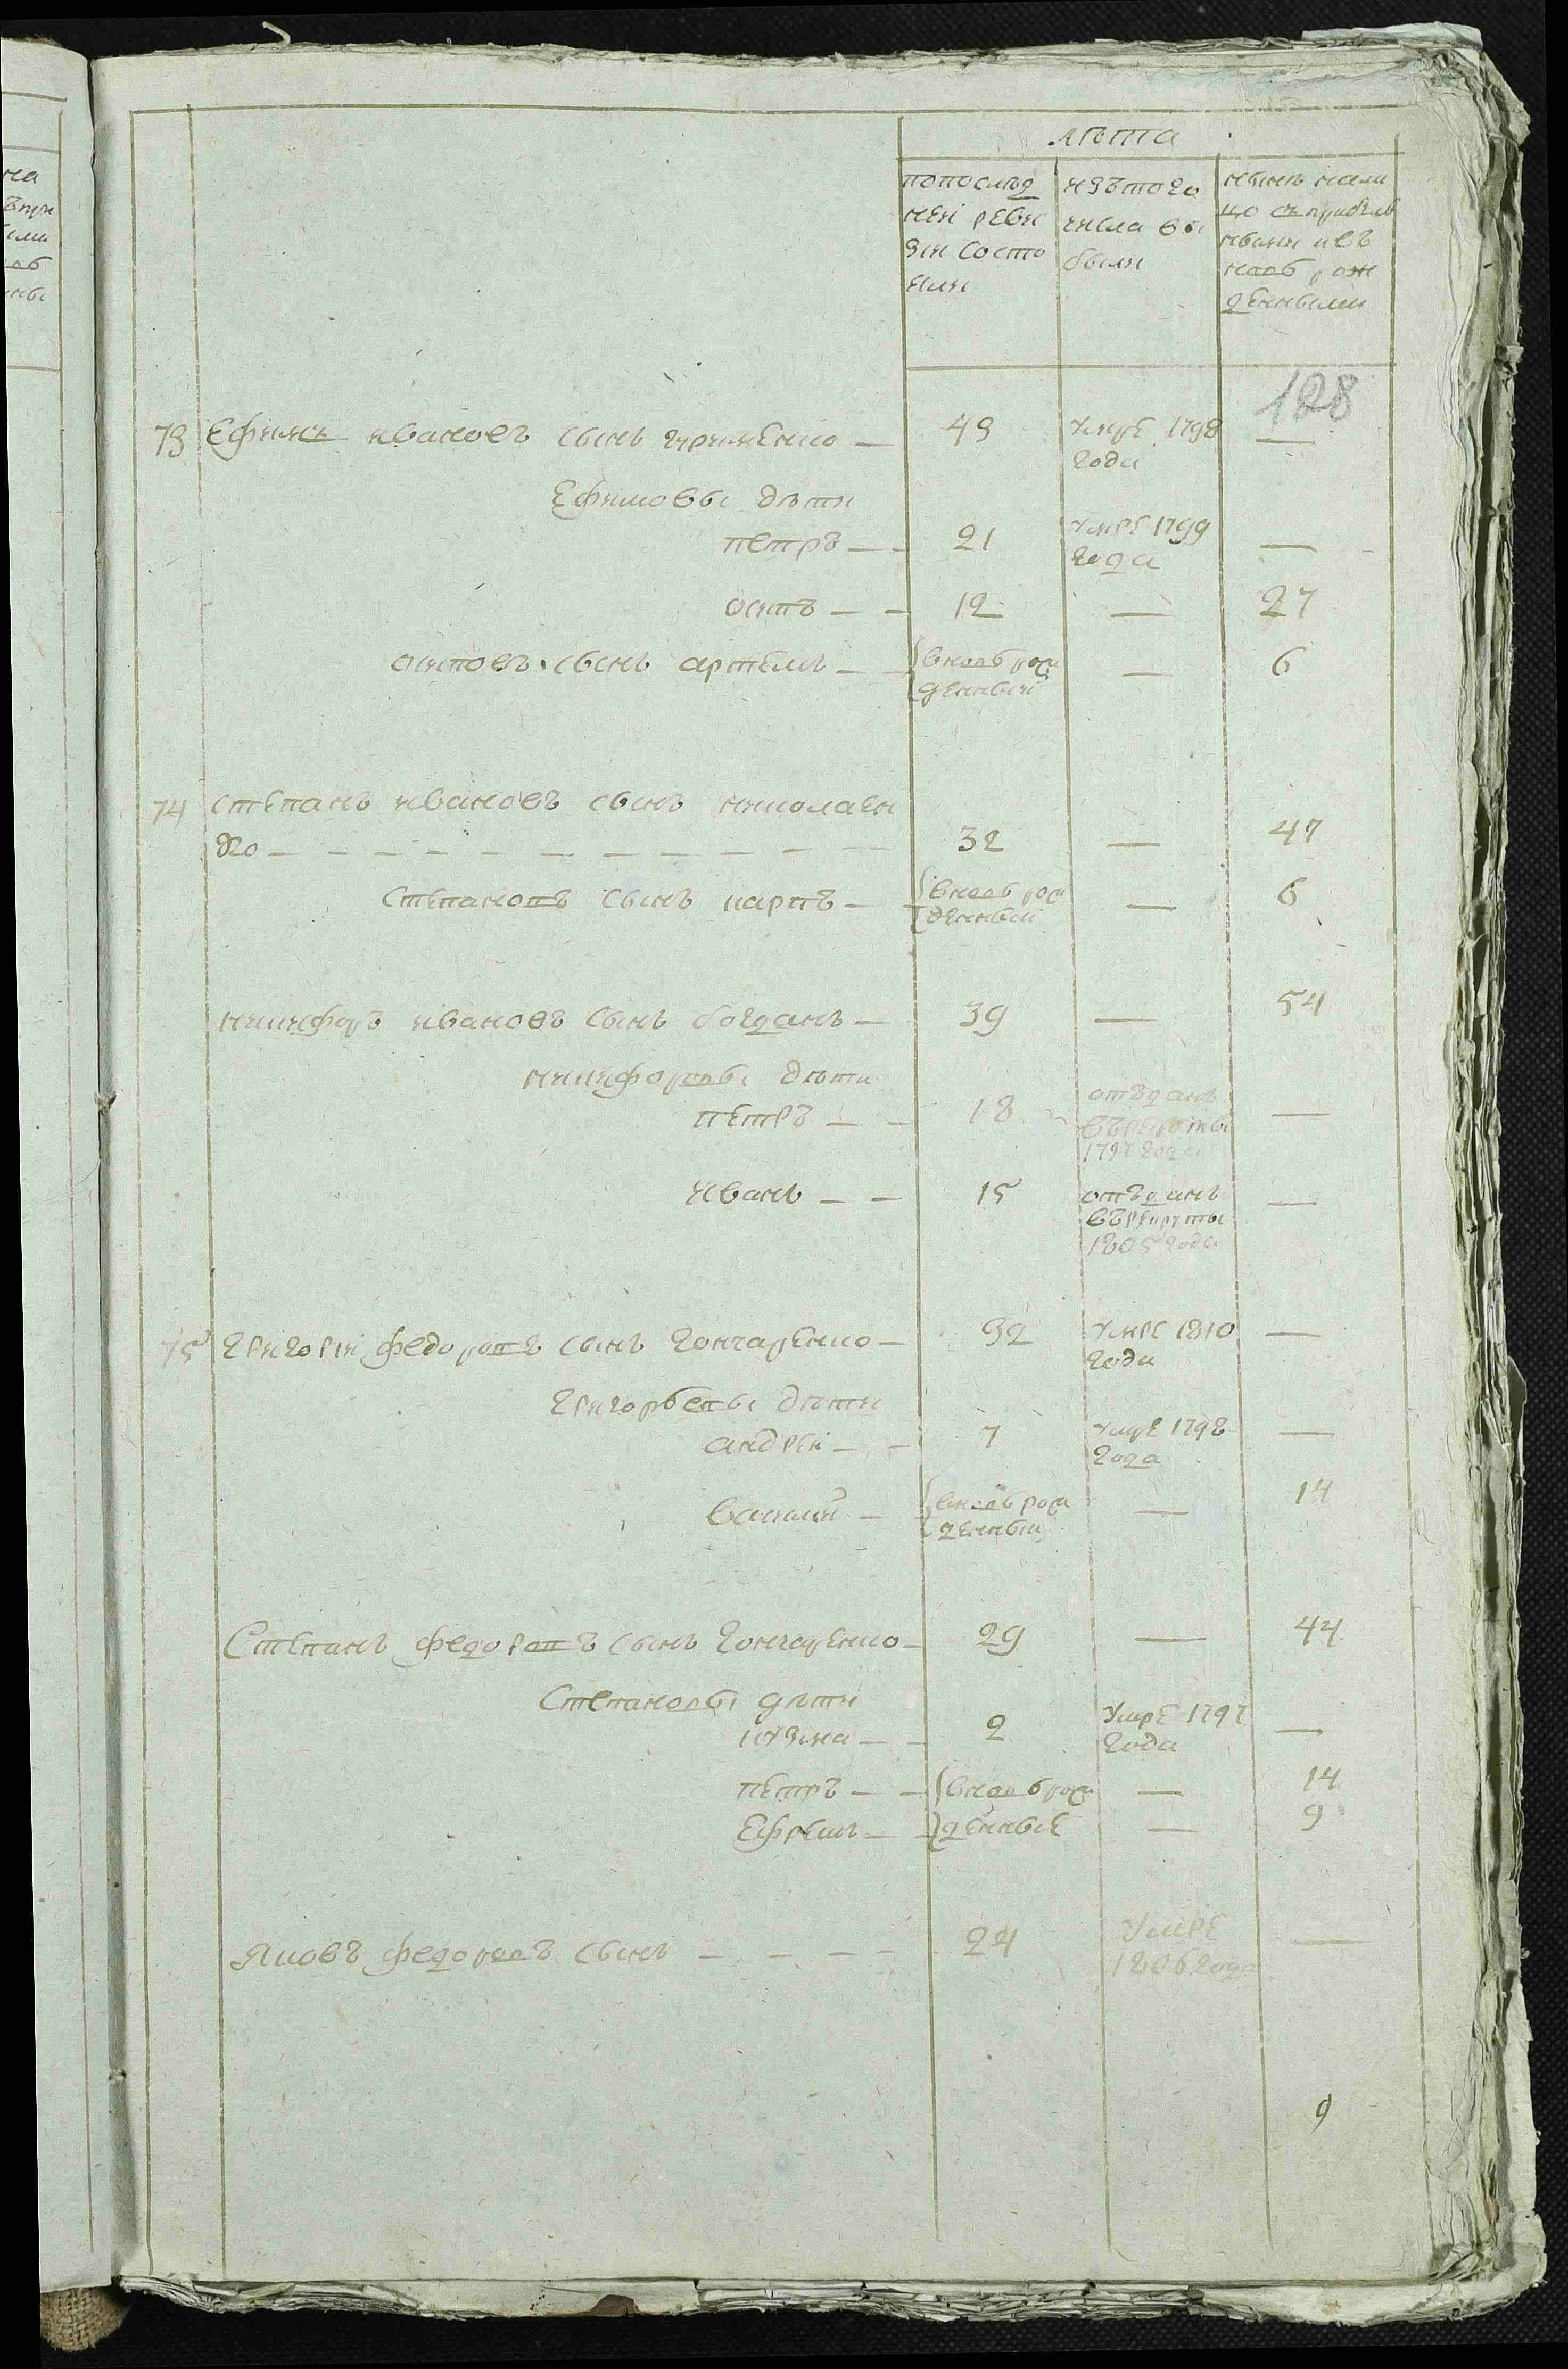 лѣта
попослѣд нзътого нынѣ нали
ней реви числа вы цо съприбыв
зіи состо были шыми ивъ
яли новѣ рож
денными
128
73 Ефимъ ивановъ сынъ 49 умре 1798 —
года
Ефимовы дѣти
петръ — — 21 умре 1799 —
года
осипъ — — 12 — 27
осиповъ сынъ артемъ — вновь рож — 6
денный
74 степанъ ивановъ сынъ николаен
ко — — — — — — — — — 32 — 47
степановъ сынъ карпъ — вновь рож — 6
денный
никифоръ ивановъ сынъ богданъ — 39 — 54
никифоровы дѣти
петръ — — 18 отъданъ —
върекруты
года
иванъ — — 15 отъданъ —
върекруты
1805 года
75 григорій федоровъ сынъ гончаренко — 32 умре 1810 —
года
григорьевы дѣти
андрей — — 7 умре 1798 —
года
василій — вновь рож — 14
денный
Степанъ федоровъ сынъ гончаренко — 29 — 44
Степановы дѣти
козма — — 2 умре 1797 —
года
петръ — — вновь рож — 14
Ефремъ — — денные — 9
яковъ федоровъ сынъ — — — — 24 умре —
1806 года
9